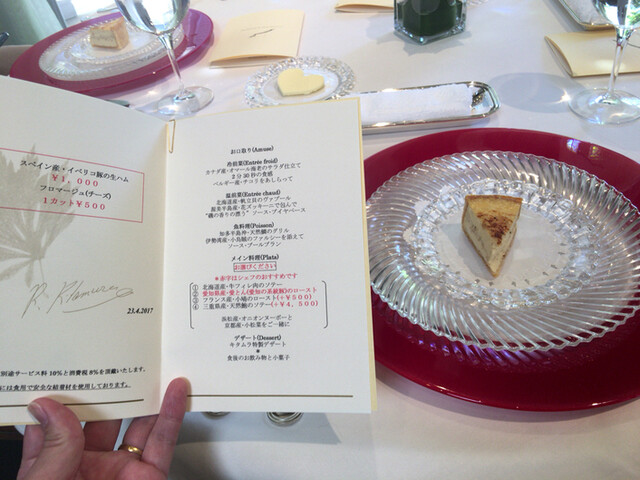 スペイン産・イベリコ豚の生ハム
￥1，000
フロマージュ(チーズ)
1カット￥500
23.4.2017
別途サービス料 10％と消費税 8％を頂戴いたします。
には食用で安全な結着材を使用しております。
お口取り(Amuse)
冷前菜(Entrée froid)
カナダ産・オマール海老のサラダ仕立て
2分30秒の食感
ベルギー産・チコリをあしらって
温前菜(Entrée chaud)
北海道産・帆立貝のヴァプール
知多半島産・花ズッキーニで包んで
"磯の香りの漂う" ソース・アイヤベース
魚料理(Poisson)
知多半島沖・天然鯛のグリル
伊勢湾産・小烏賊のファルシーを添えて
ソース・ブールブラン
メイン料理(Plats)
お選びください
＊赤字はシェフのおすすめです
① 北海道産・牛フィレ肉のソテー
② 愛知県産・愛とん(愛知の系統豚)のロースト
③ フランス産・小鳩のロースト(+￥500)
④ 三重県産・天然鮑のソテー(+￥4，500)
浜松産・オニオンヌーボーと
京都産・小松菜をご一緒に
デザート(Dessert)
キタムラ特製デザート
＊
食後のお飲み物と小菓子